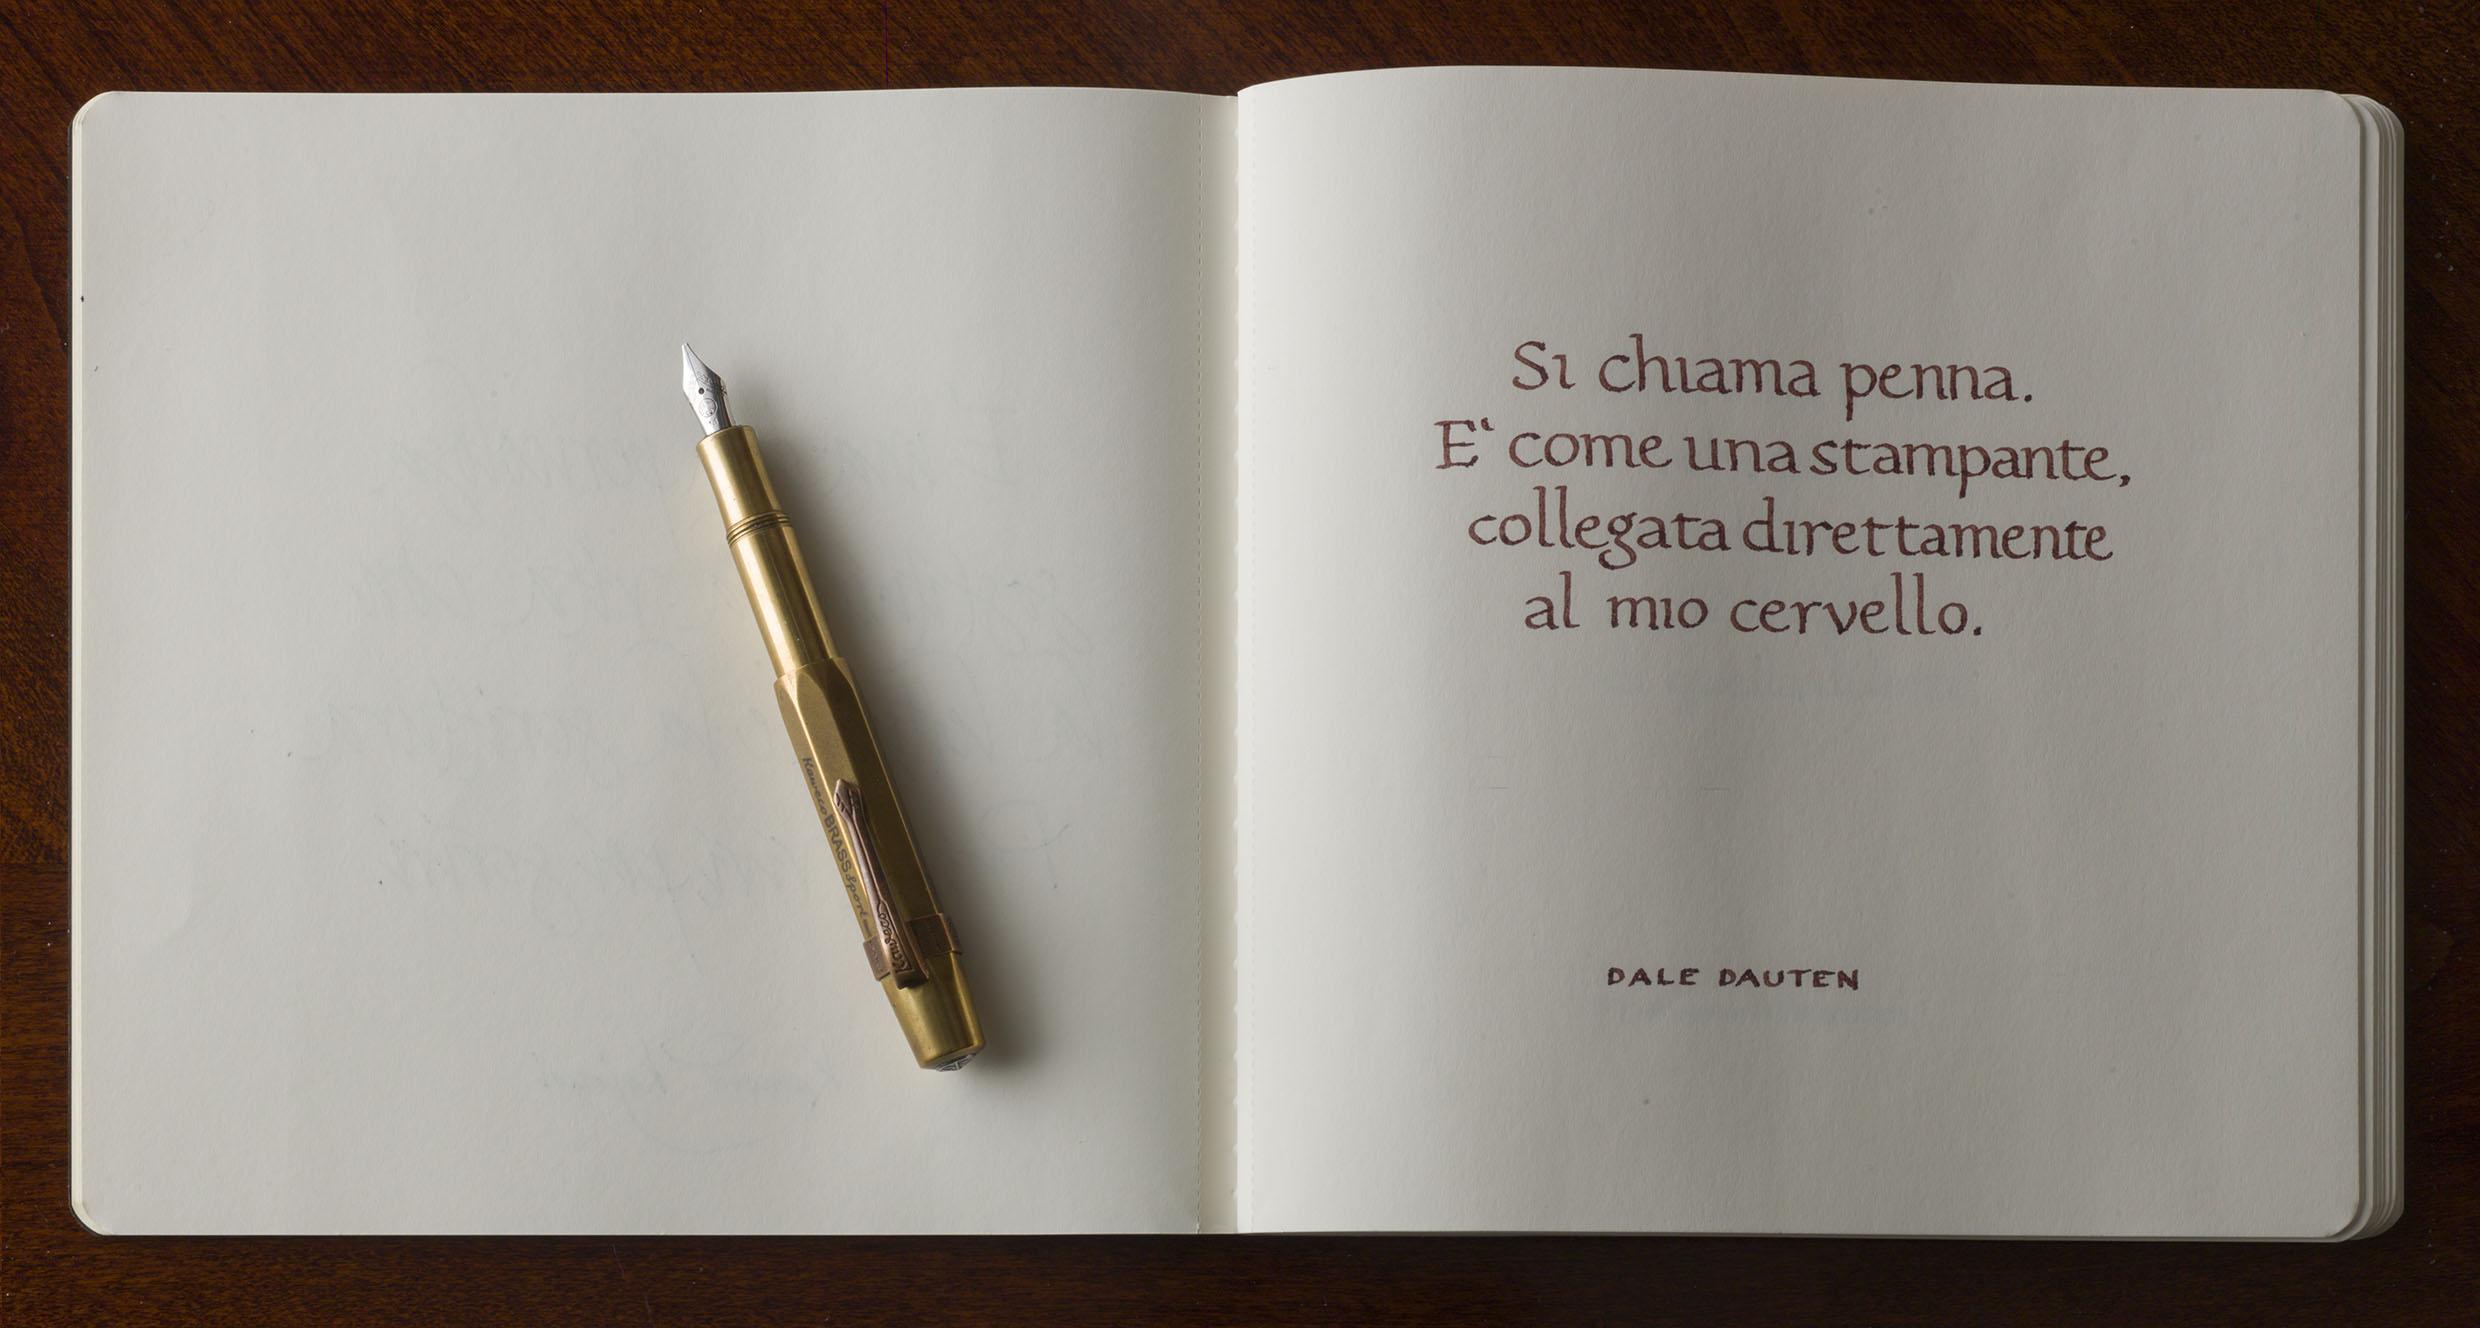 Kaweco BRASS Sport
Kaweco
Si chiama penna.
E' come una stampante,
collegata direttamente
al mio cervello.
DALE DAUTEN